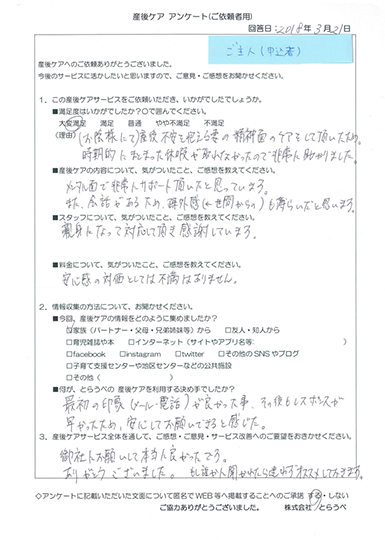 産後ケア アンケート(ご依頼者用)
回答日：2018年 3月21日
ご主人(申込者)
産後ケアへのご依頼ありがとうございました。
今後のサービスに活かしたいと思いますので、ご意見・ご感想をお聞かせください。
1．この産後ケアサービスをご依頼いただき、いかがでしたでしょうか。
■満足度はいかがでしたか？○で囲んでください。
大変満足　満足　普通　やや不満足　不満足
(理由) (お陰様にて)産後不安を抱える妻の精神面のケアをして頂いたため。
時期的にまとまった休暇が取れなかったので非常に助かりました。
■産後ケアの内容について、気がついたこと、ご感想を教えてください。
メンタル面で非常にサポート頂いたと思っています。
また、会話があるため、疎外感(世間からの)も薄らいだと思います。
■スタッフについて、気がついたこと、ご感想を教えてください。
親身になって対応して頂き感謝しています。
■料金について、気がついたこと、ご感想を教えてください。
安心感の対価としては不満はありません。
2．情報収集の方法について、お聞かせください。
■今回、産後ケアの情報をどのように集めましたか？
家族（パートナー・父母・兄弟姉妹等）から　□友人・知人から
□育児雑誌や本　□インターネット（サイトやアプリ名等：　）
□facebook　□instagram　□twitter　□その他のSNSやブログ
□子育て支援センターや地区センターなどの公共施設
□その他（　）
■何が、とらうべの産後ケアを利用する決め手でしたか？
最初の印象(メール・電話)が良かった事、その後もレスポンスが
早かったため、安心してお願いできると感じた。
3．産後ケアサービス全体を通して、ご感想・ご意見・サービス改善へのご要望をおきかせください。
御社にお願いして本当に良かったです。
ありがとうございました。もし誰か人に聞かれたら迷わずオススメしておきます。
◇アンケートに記載いただいた文面について匿名でWEB等へ掲載することへのご承諾　する・しない
ご協力ありがとうございました。　株式会社 とらうべ